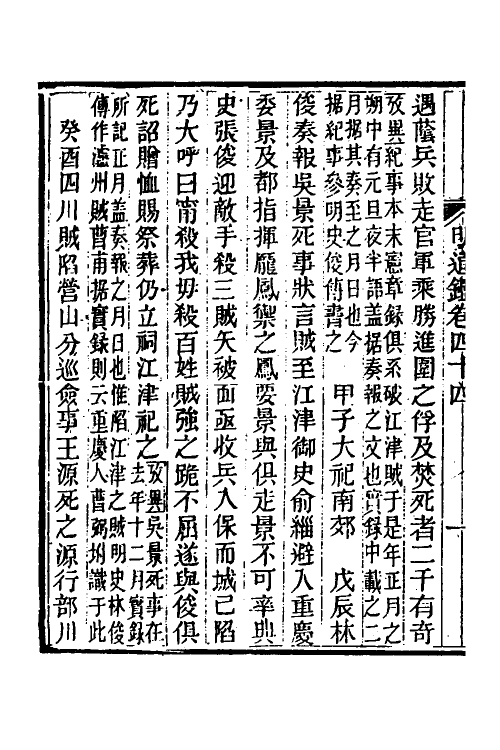 明通鑑卷四十四
一
遇蔭兵敗走官軍乘勝進圍之俘及焚死者二千有奇
攷異紀事本末憲章錄俱系破江津賊于是年正月之
朔中有元旦夜半語葢据奏報之文也實錄中載之二
月据其奏至之月日也今
据紀事參明史俊傳書之
甲子大祀南郊
戊辰林
俊奏報吳景死事狀言賊至江津御史俞緇避入重慶
委景及都指揮龐鳳禦之鳳要景與俱走景不可率典
史張俊迎敵手殺三賊矢被面亟收兵入保而城已陷
乃大呼曰甯殺我毋殺百姓賊強之跪不屈遂與俊俱
死詔贈恤賜祭葬仍立祠江津祀之
攷異吳景死事在
去年十二月實錄
所記正月葢奏報之月日也惟陷江津之賊明史林俊
傳作瀘州賊曹甫据實錄則云重慶人曹弼坿識于此
癸酉四川賊陷營山分巡僉事王源死之源行部川